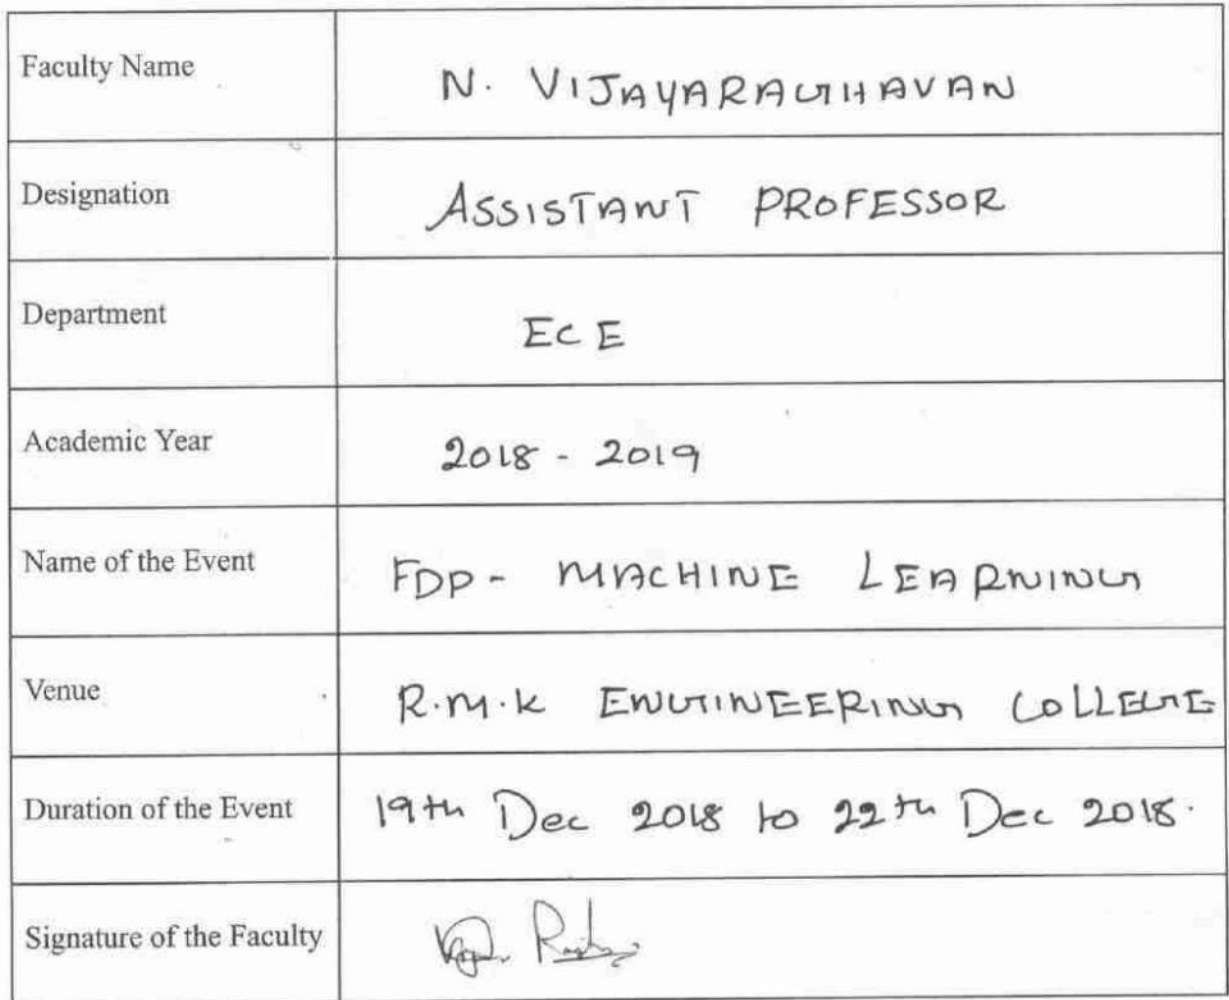 Faculty Name N. VIJAYARAGHAVAN
Designation ASSISTANT PROFESSOR
Department ECE
Academic Year 2018 - 2019
Name of the Event FDP - MACHINE LEARNING
Venue R.M.K ENGINEERING COLLEGE
Duration of the Event 19th Dec 2018 to 22th Dec 2018.
Signature of the Faculty